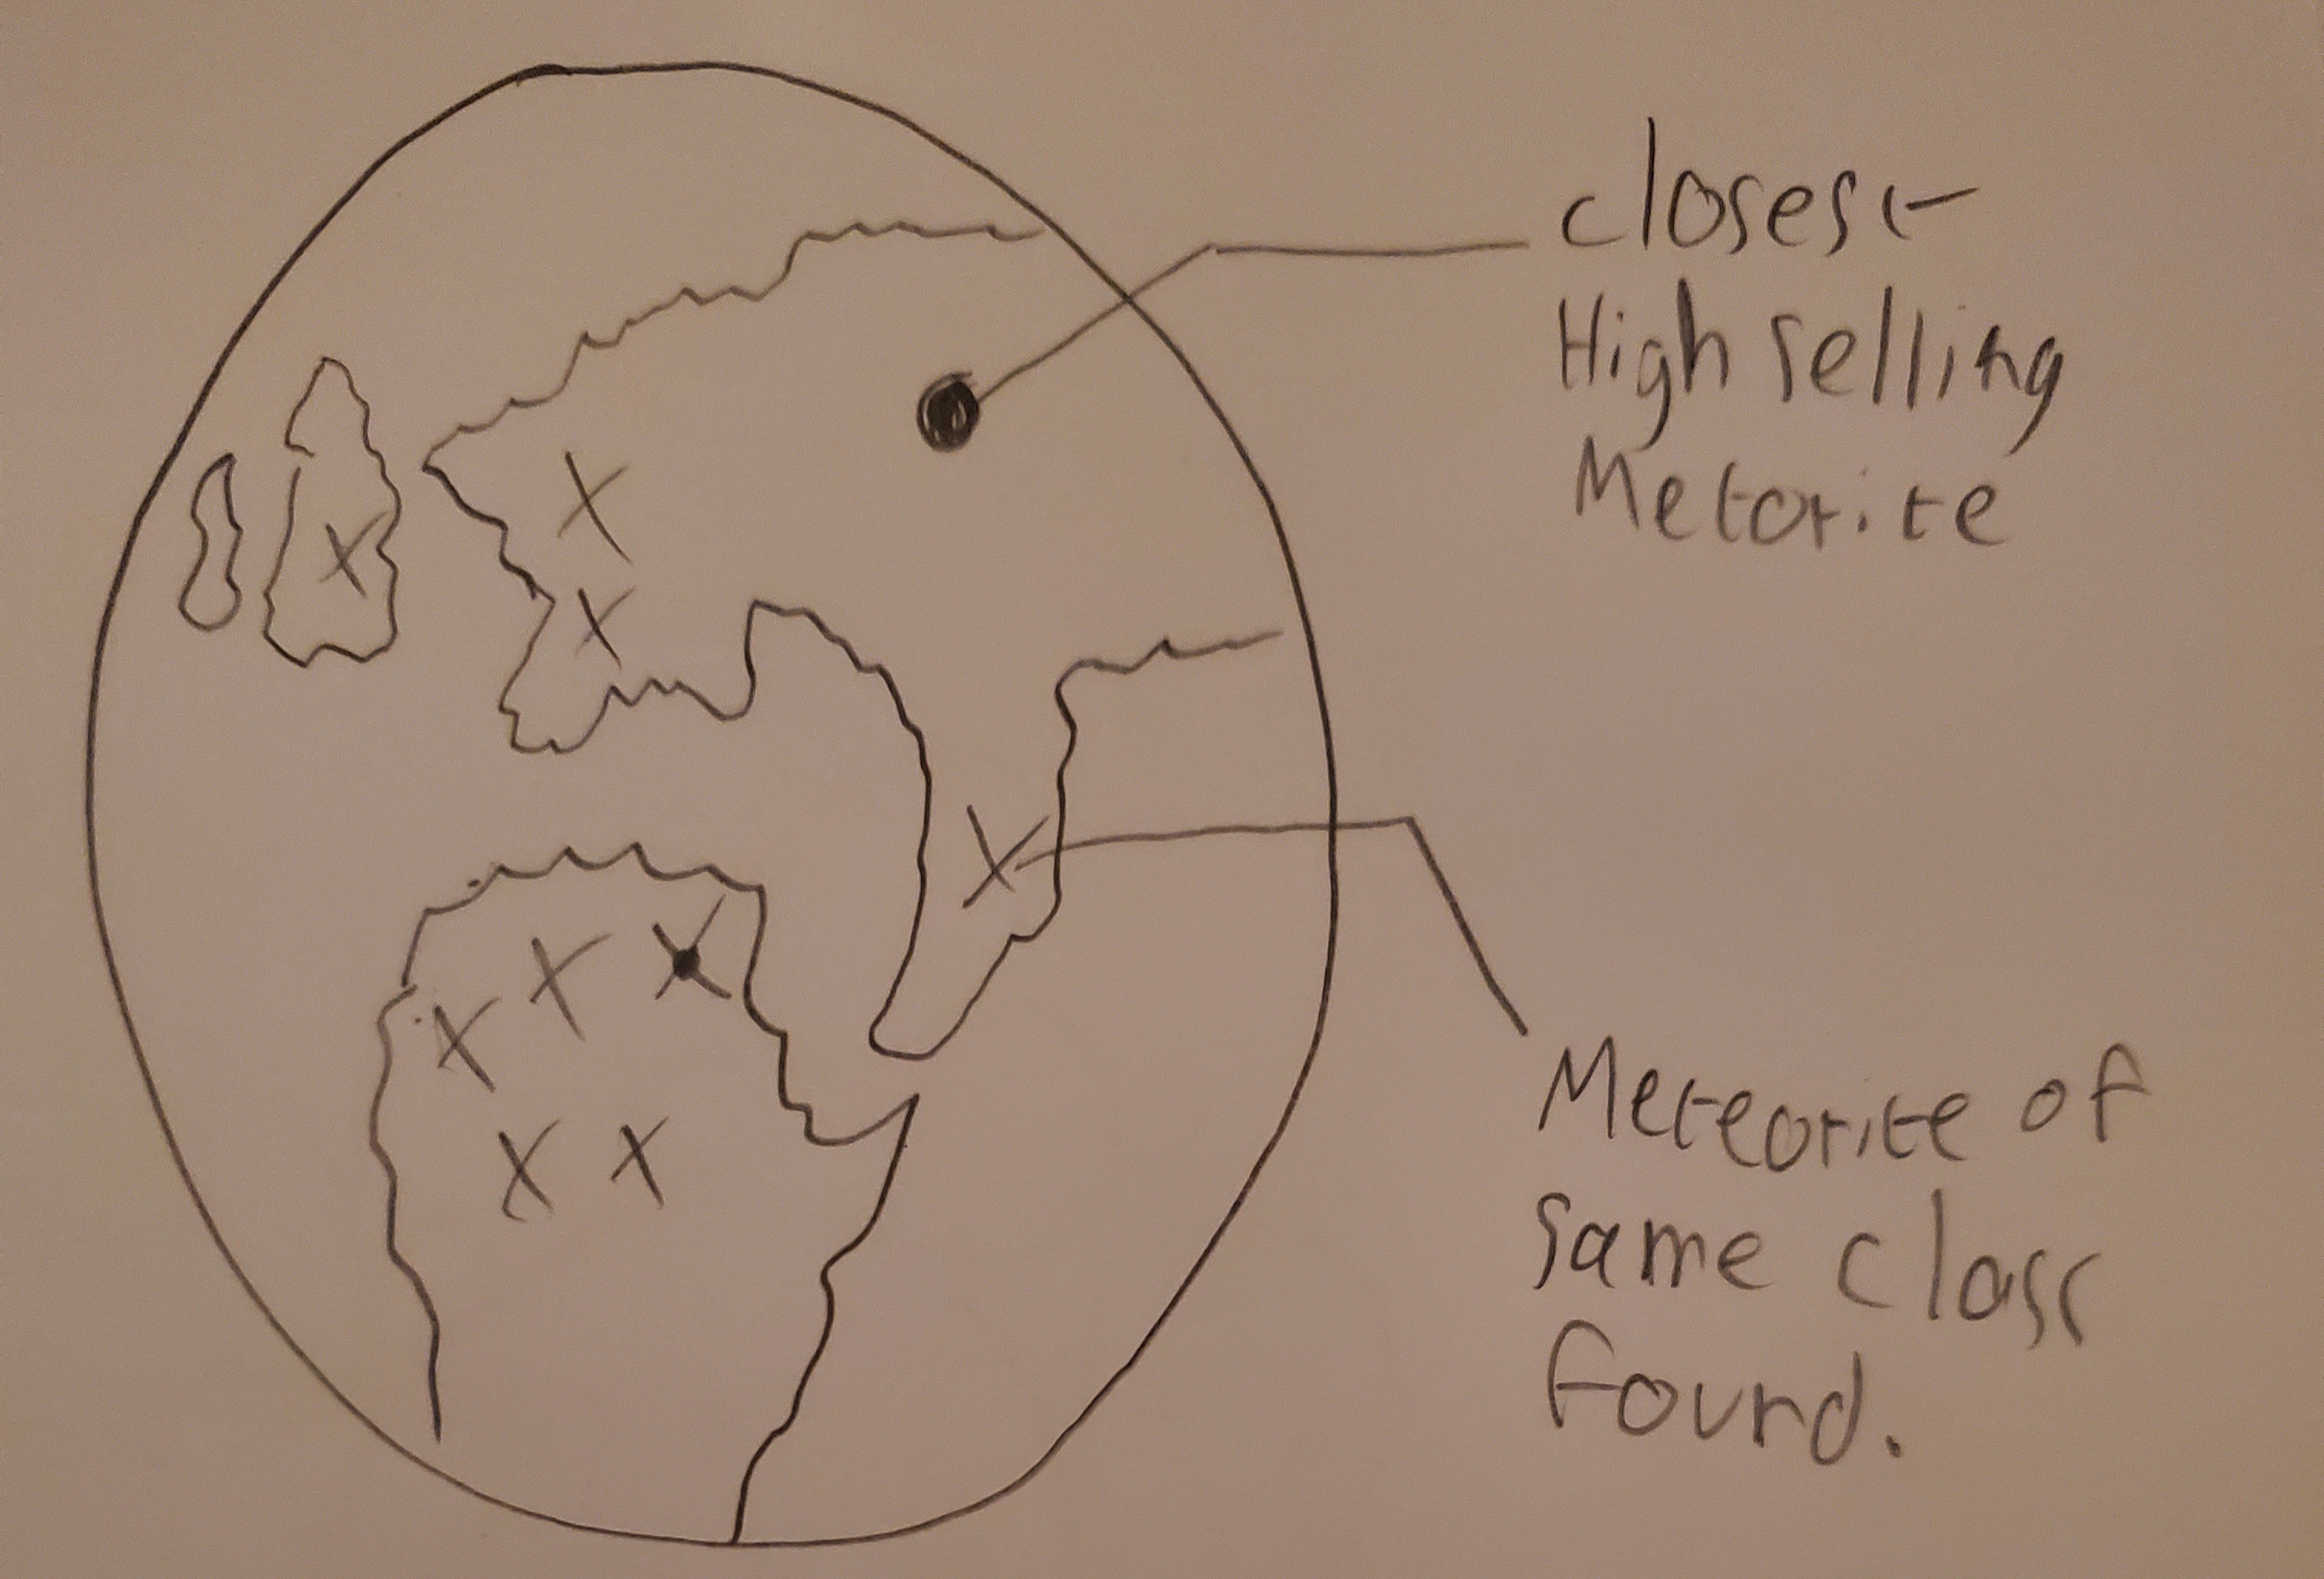 closest
High selling
Metorite
Meteorite of
same class
found.